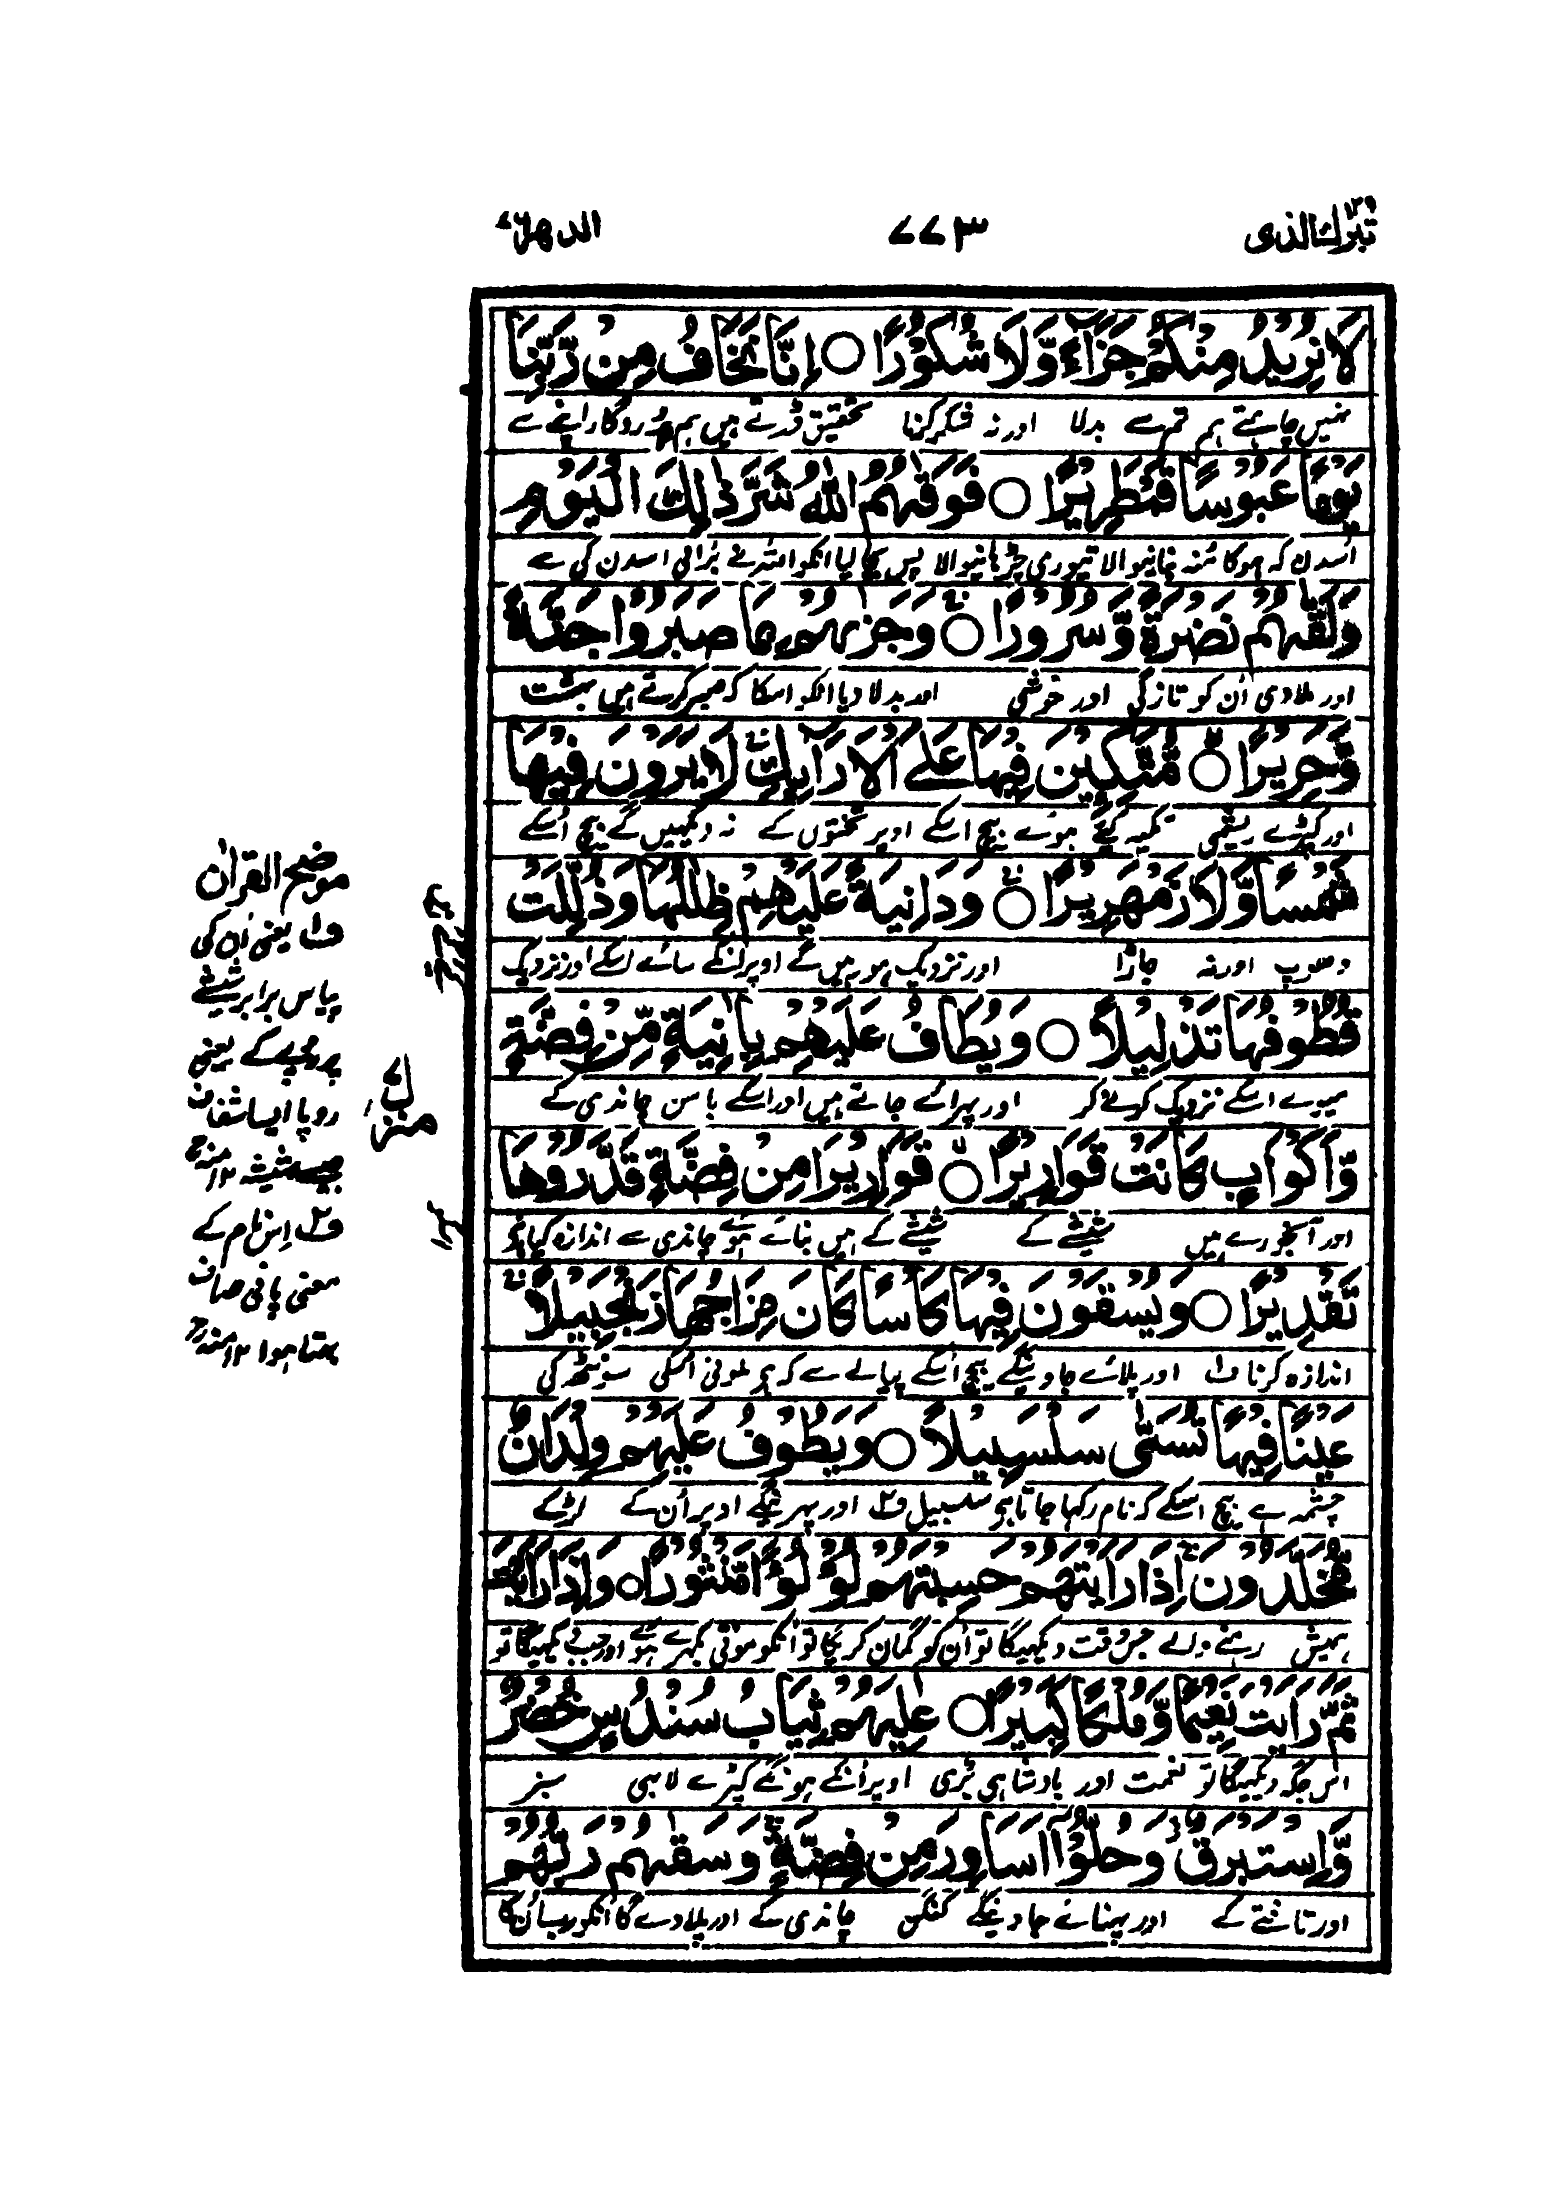 تبٰرك الذی ۲۹
۷۷۳
الدهر ۷۶
لَا نُرِيْدُ مِنْكُمْ جَزَآءً وَّلَا شُكُوْرًا ○ اِنَّا نَخَافُ مِنْ رَّبِّنَا
نہیں چاہتے ہم تم سے بدلا اور نہ شکر کرنا تحقیق ڈرتے ہیں ہم پروردگار اپنے سے
يَوْمًا عَبُوْسًا قَمْطَرِيْرًا ○ فَوَقٰىهُمُ اللّٰهُ شَرَّ ذٰلِكَ الْيَوْمِ
اُسدن کہ ہوگا مُنہ بنانیوالا تیوری چڑہانیوالا پس بچا لیا انکو اللہ نے بُرائی اسدن کی سے
وَلَقّٰىهُمْ نَضْرَةً وَّسُرُوْرًا ○ وَجَزٰىهُمْ بِمَا صَبَرُوْا جَنَّةً
اور ملادی اُن کو تازگی اور خوشی اور بدلا دیا انکو اسکا کہ صبر کرتے ہیں بہشت
وَّحَرِيْرًا ○ مُّتَّكِـِٕيْنَ فِيْهَا عَلَى الْاَرَآئِكِ لَا يَرَوْنَ فِيْهَا
اور کپڑے ریشمی تکیہ کیئے ہوئے بیچ اسکے اوپر تختوں کے نہ دیکھیں گے بیچ اُسکے
شَمْسًا وَّلَا زَمْهَرِيْرًا ○ وَدَانِيَةً عَلَيْهِمْ ظِلٰلُهَا وَذُلِّلَتْ
دھوپ اور نہ جاڑا اور نزدیک ہورہیں گے اوپر انکے سائے اسکے اور نزدیک
قُطُوْفُهَا تَذْلِيْلًا ○ وَيُطَافُ عَلَيْهِمْ بِاٰنِيَةٍ مِّنْ فِضَّةٍ
میوے اسکے نزدیک کرنے کر اور پہرائے جاتے ہیں اور اسکے باسن چاندی کے
وَّاَكْوَابٍ كَانَتْ قَوَارِيْرَا ○ قَوَارِيْرَا مِنْ فِضَّةٍ قَدَّرُوْهَا
اور آبخورے ہیں شیشے کے شیشے کے ہیں بنائے ہوئے چاندی سے اندازہ کیا ہے
تَقْدِيْرًا ○ وَيُسْقَوْنَ فِيْهَا كَاْسًا كَانَ مِزَاجُهَا زَنْجَبِيْلًا
اندازہ کرنا ف۱ اور پلائے جاوینگے بیچ اُسکے پیالے سے کہ ہے ملونی اسکی سونٹھ کی
عَيْنًا فِيْهَا تُسَمّٰى سَلْسَبِيْلًا ○ وَيَطُوْفُ عَلَيْهِمْ وِلْدَانٌ
چشمہ ہے بیچ اسکے کہ نام رکھا جاتا ہے سلسبیل ف۲ اور پھرینگے اوپر اُن کے لڑکے
مُّخَلَّدُوْنَ اِذَا رَاَيْتَهُمْ حَسِبْتَهُمْ لُؤْلُؤًا مَّنْثُوْرًا ○ وَاِذَا رَاَيْتَ
ہمیش رہنے والے جس وقت دیکھیگا تو اُن کو گمان کریگا تو انکو موتی بکھرے ہوئے اور جب دیکھیگا تو
ثَمَّ رَاَيْتَ نَعِيْمًا وَّمُلْكًا كَبِيْرًا ○ عٰلِيَهُمْ ثِيَابُ سُنْدُسٍ خُضْرٌ
اس جگہ دیکھیگا تو نعمت اور بادشاہی بڑی اوپر اُنکے ہونگے کپڑے لاہی سبز
وَّاِسْتَبْرَقٌ وَّحُلُّوْۤا اَسَاوِرَ مِنْ فِضَّةٍ وَسَقٰىهُمْ رَبُّهُمْ
اور تافتے کے اور پہنائے جاوینگے کنگن چاندی کے اور پلاوے گا انکو رب اُن کا
موضح القراٰن
ف۱ یعنی اُن کی
پیاس برابر شیشے
پر روپے کے یعنی
روپا ایسا شفاف
جیسے شیشہ ۱۲ منہ رح
ف۲ اِس نام کے
معنی پانی صاف
بہتا ہوا ۱۲ منہ رح
منزل ۷